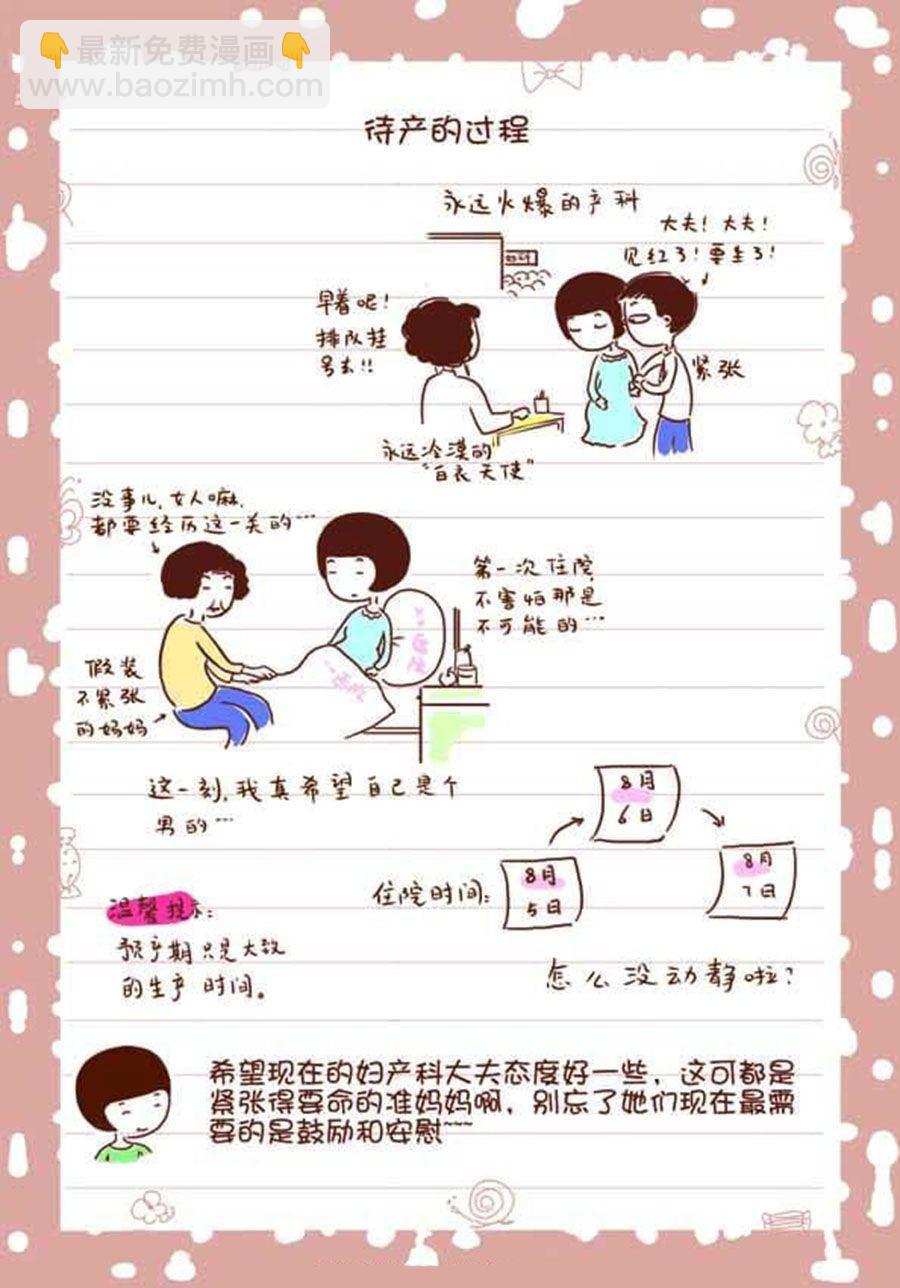 👇最新免费漫画👇
www.baozimh.com
待产的过程
永远火爆的产科
大夫！大夫！
见红了！要生了！
早着呢！
排队挂
号去！！
紧张
永远冷漠的
“白衣天使”
没事儿，女人嘛，
都要经历这一关的…
第一次住院，
不害怕那是
不可能的…
假装
不紧张
的妈妈
医院
这一刻，我真希望自己是个
男的…
8月
6日
住院时间：
8月
5日
8月
7日
温馨提示：
预产期只是大致
的生产时间。
怎么没动静啦？
希望现在的妇产科大夫态度好一些，这可都是
紧张得要命的准妈妈啊，别忘了她们现在最需
要的是鼓励和安慰~~~